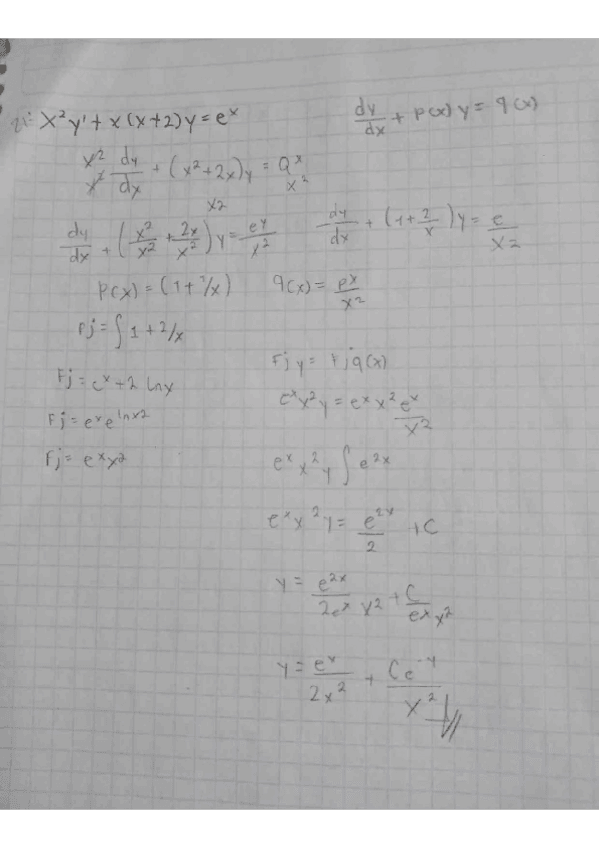 21: x²y' + x(x+2)y = eˣ
dy/dx + p(x)y = q(x)
x²/x² dy/dx + (x²+2x)y/x² = eˣ/x²
dy/dx + (x²/x² + 2x/x²)y = eˣ/x²
dy/dx + (1+2/x)y = e/x²
p(x) = (1+2/x)
q(x) = eˣ/x²
Fj = ∫ 1+2/x
Fj = eˣ+2 lnx
Fj = eˣe^lnx2
Fj = eˣx²
Fj y = Fj q(x)
eˣx²y = eˣx² eˣ/x²
eˣx²y ∫ e²ˣ
eˣx²y = e²ˣ/2 + C
y = e²ˣ/2eˣx² + C/eˣx²
y = eˣ/2x² + Ce⁻ˣ/x²